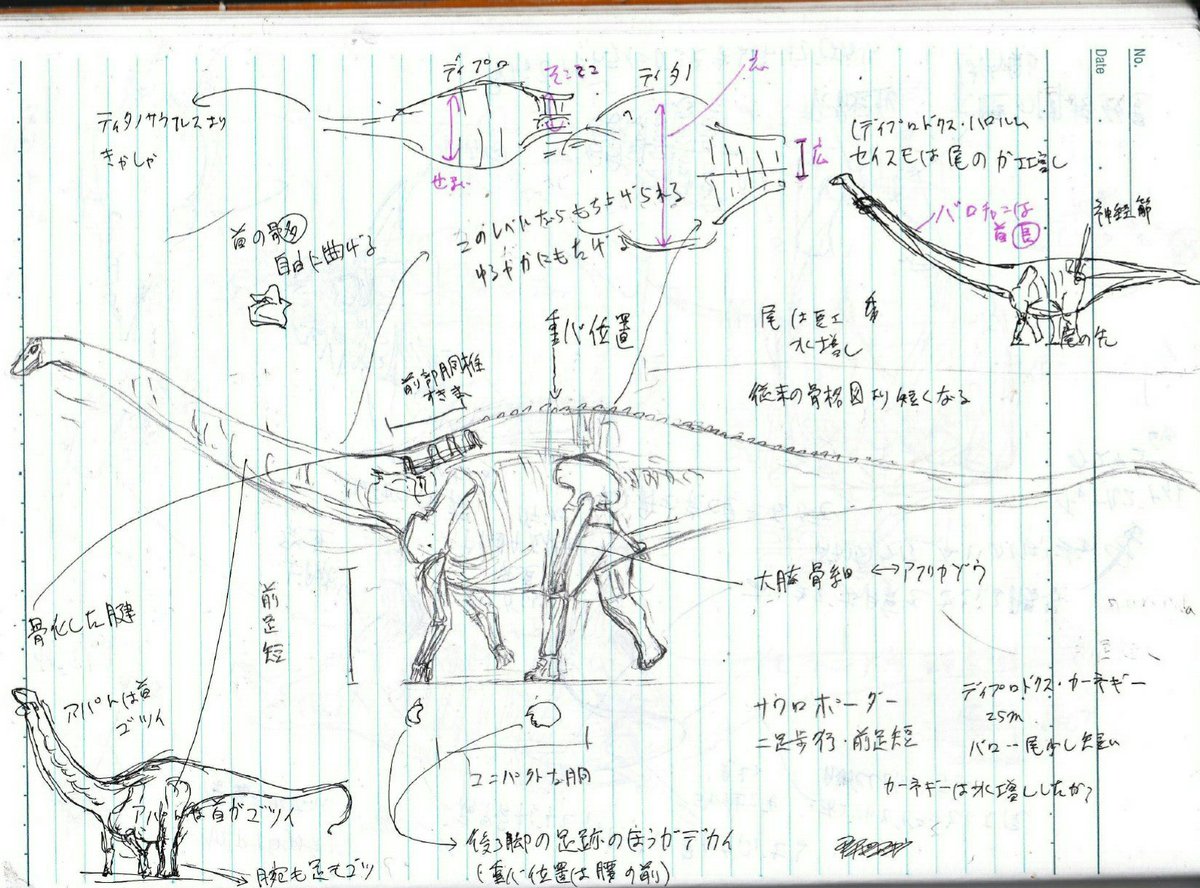 No.
Date
ディプロ
そこそこ
ティタノ
広
ティタノサウルスより
きゃしゃ
せまい
広
(ディプロドクス・ハロルム
セイスモは尾の
増し
バロサウは
首長
神経節
首の骨多
自由に曲げる
このレベルならもちあげられる
ゆるやかにもたげる
重心位置
尾は
水増し
尾の先
前部胴椎
すきま
従来の骨格図より短くなる
大腿骨細 ↔アフリカゾウ
骨化した腱
前足短
アパトは首
ゴツイ
アパトは首がゴツイ
腕も足もゴツ
コンパクトな胴
後ろ脚の足跡のほうがデカイ
(重心位置は腰の前)
サウロポーダー
二足歩行・前足短
ディプロドクス・カーネギー
25m
バロ…尾少し短い
カーネギーは水増ししたか?